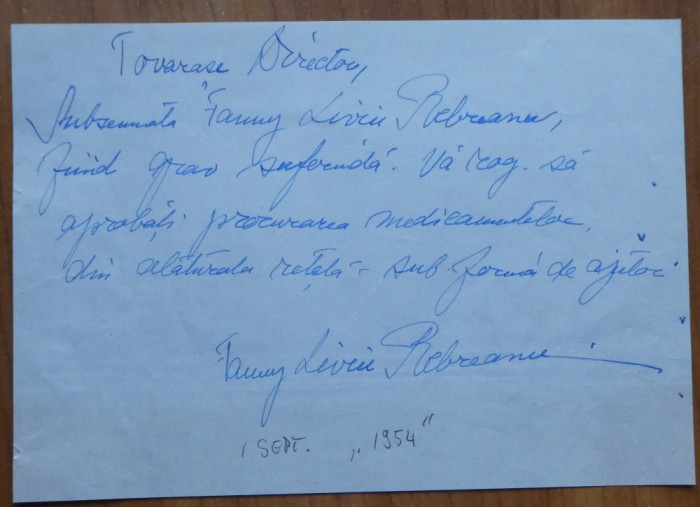 Tovarase Director,
Subsemnata Fanny Liviu Rebreanu,
fiind grav suferindă. Vă rog. să
aprobăți procurarea medicamentelor,
din alăturata rețetă - sub formă de ajutor.
Fanny Liviu Rebreanu.
1 SEPT. „1954"